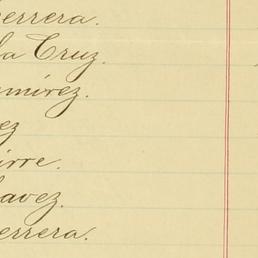 errera.
la Cruz.
amírez.
ez
irre.
havez.
errera.